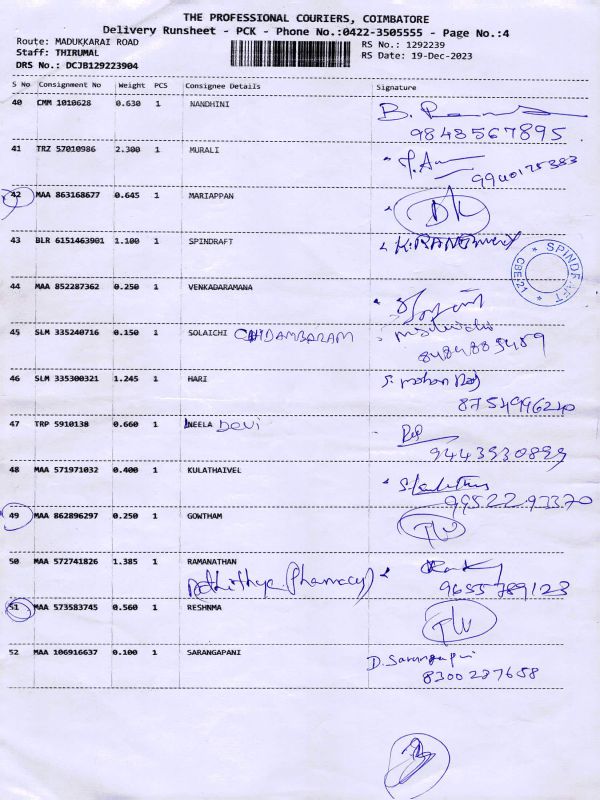 THE PROFESSIONAL COURIERS, COIMBATORE
Delivery Runsheet - PCK - Phone No.:0422-3505555 - Page No.:4
Route: MADUKKARAI ROAD RS No.: 1292239
Staff: THIRUMAL RS Date: 19-Dec-2023
DRS No.: DCJB129223904
S No Consignment No Weight PCS Consignee Details Signature
40 CMM 1010628 0.630 1 NANDHINI
9848567895
41 TRZ 57010986 2.300 1 MURALI
9940175383
42 MAA 863168677 0.645 1 MARIAPPAN
43 BLR 6151463901 1.100 1 SPINDRAFT
SPINDRAFT
CBE21
44 MAA 852287362 0.250 1 VENKADARAMANA
45 SLM 335240716 0.150 1 SOLAICHI CHIDAMBARAM
8484885489
46 SLM 335300321 1.245 1 HARI S. mohan Raj
8754996240
47 TRP 5910138 0.660 1 NEELA Devi
9443930899
48 MAA 571971032 0.400 1 KULATHAIVEL
9952293370
49 MAA 862896297 0.250 1 GOWTHAM
50 MAA 572741826 1.385 1 RAMANATHAN
(Pharmacy) 9655789123
51 MAA 573583745 0.560 1 RESHNMA
52 MAA 106916637 0.100 1 SARANGAPANI D. Sarangapani
8300227658